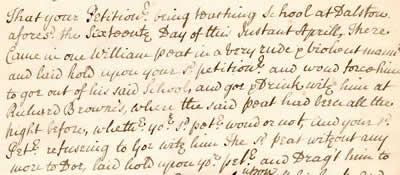 That your Petitionr. being teaching School at Dalston
aforesd. the Sixteenth Day of this Instant Aprill, There
Came in one William peat in a very rude & violent mannr
and laid hold upon your sd. petitionr. and woud force him
to goe out of his said School, and goe & Drink with him at
Richard Brown's, where the said peat had been all the
night before, whethr. yor. sd. petr. woud or not, And your sd.
Petr. refusing to Goe with him The sd. peat without any
more to Doe, laid hold upon yor. petr. and Dragt him to
upon